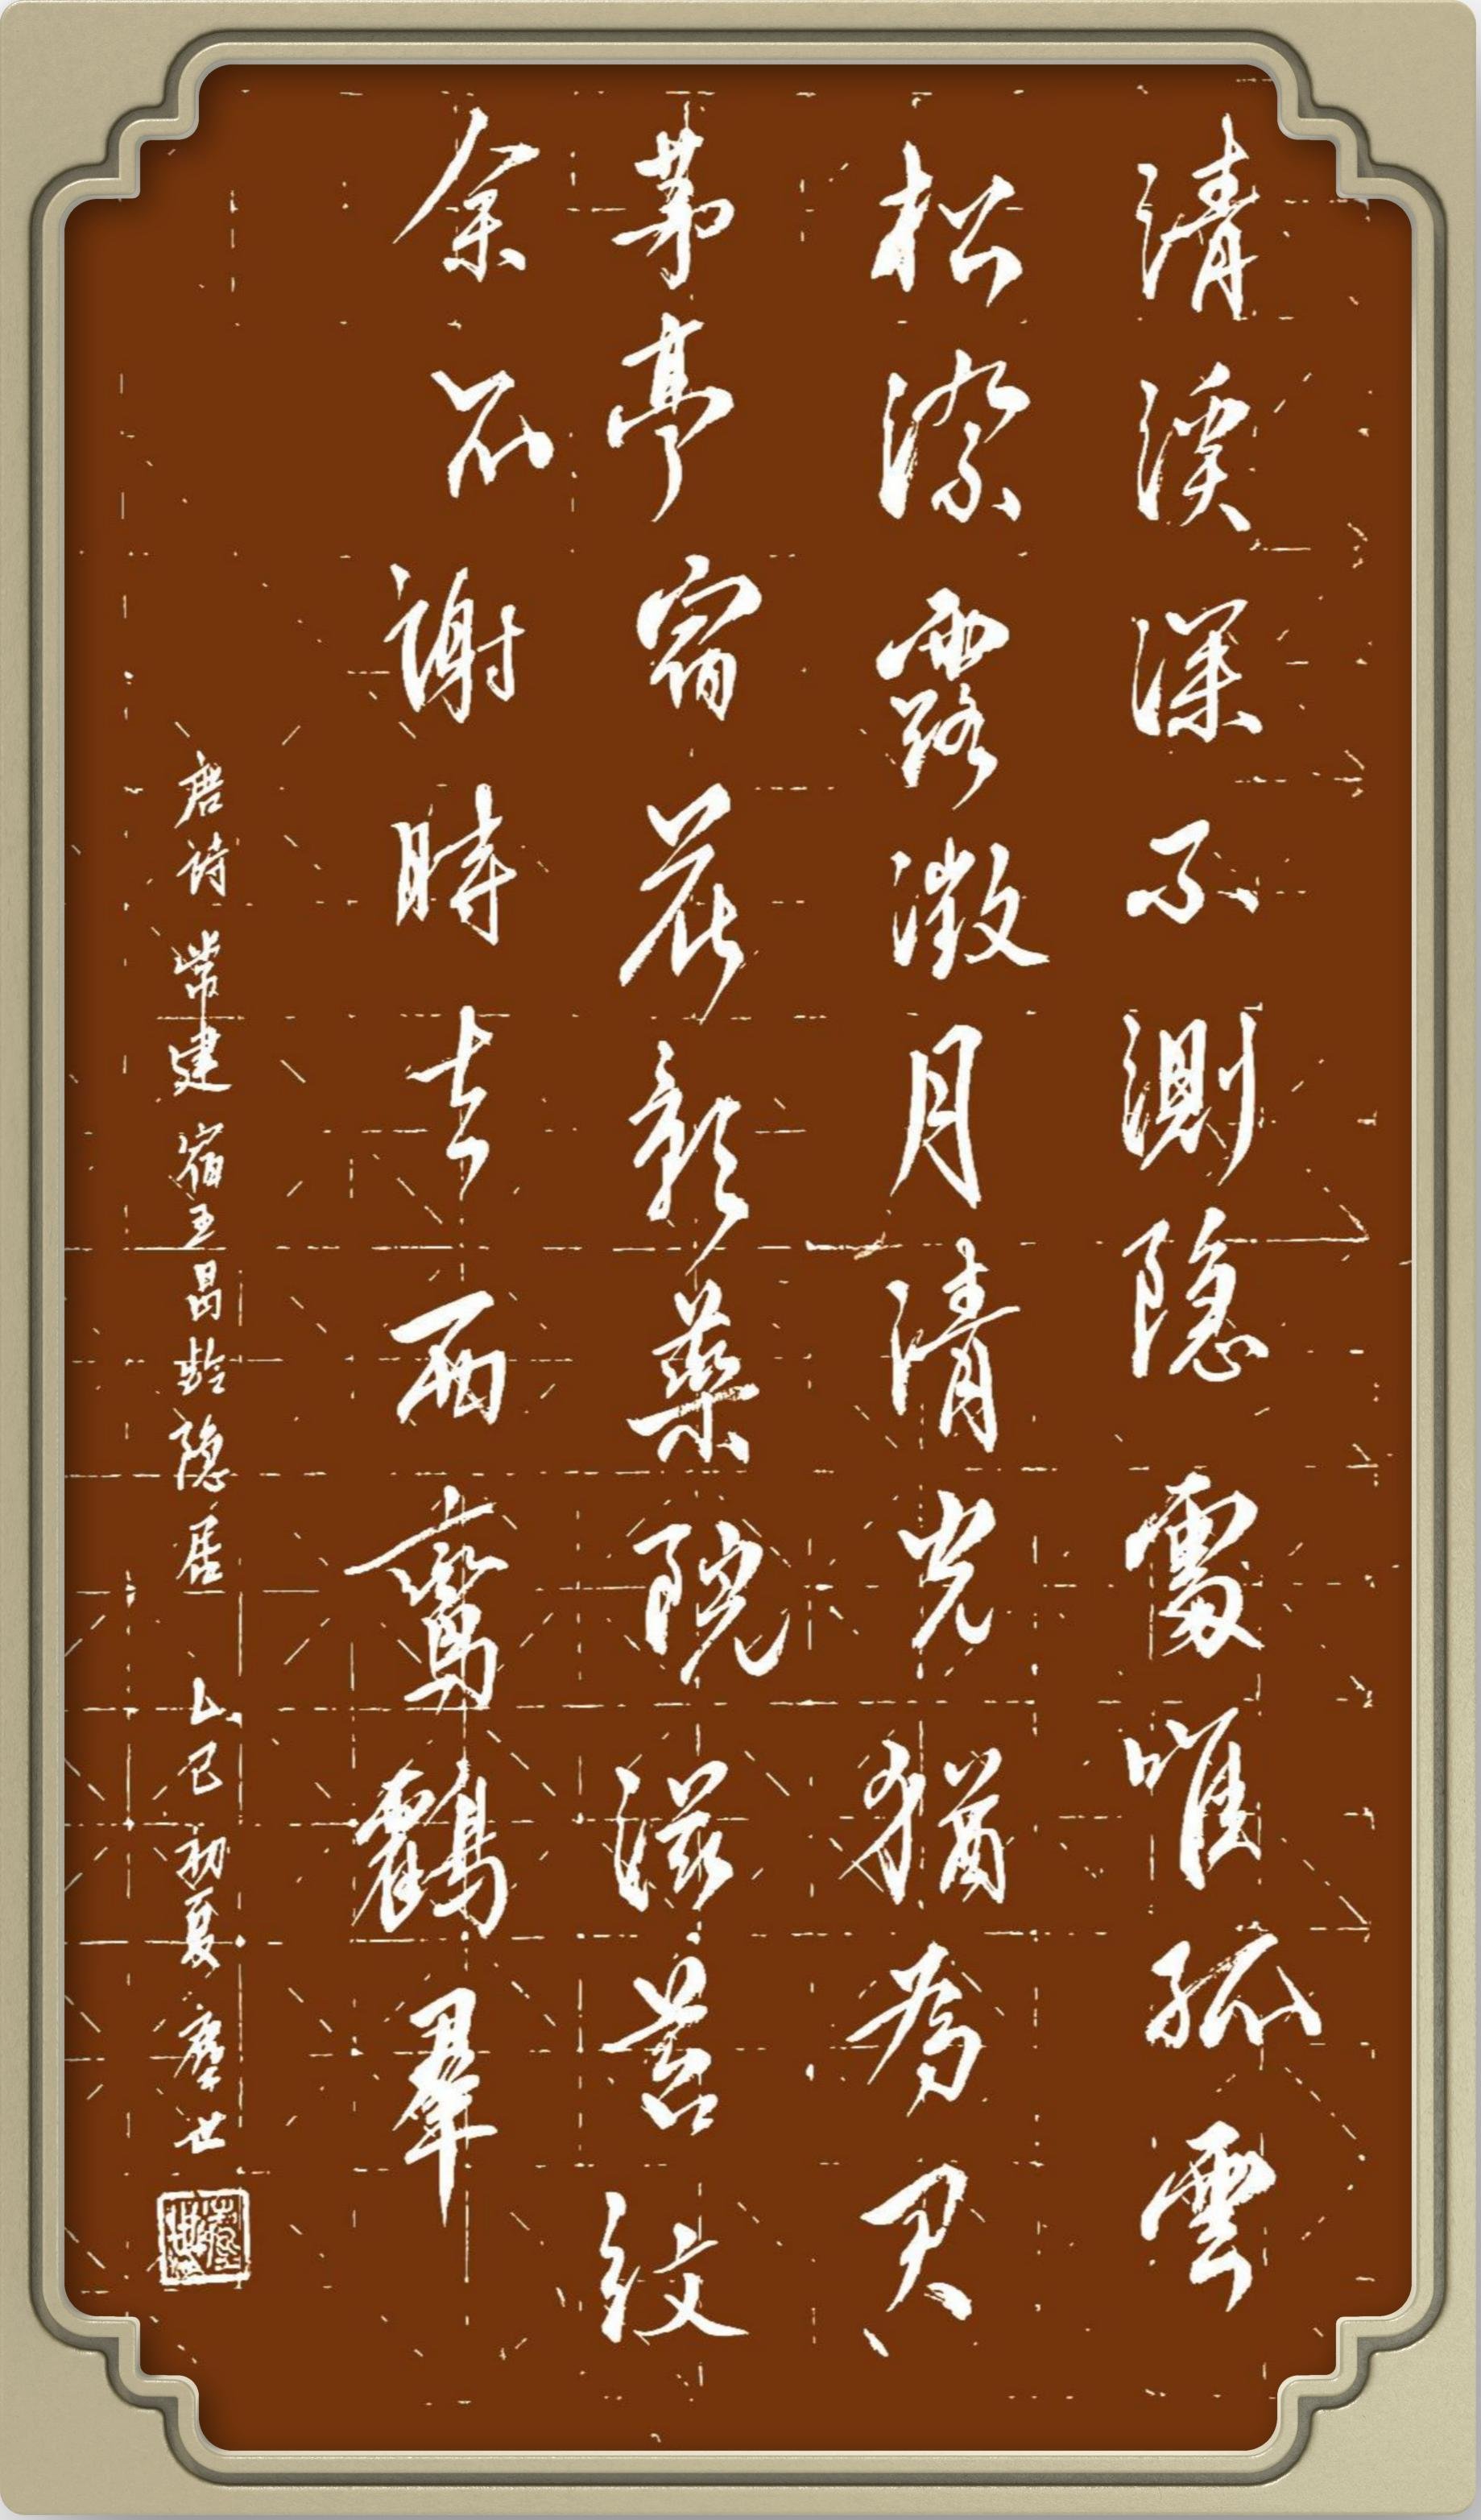 清溪深不測隐處唯孤雲
松際露微月清光猶為君
茅亭宿花影藥院滋苔紋
余亦謝時去西鸞鶴羣
唐诗 常建宿王昌龄隐居 乙巳初夏 塵世